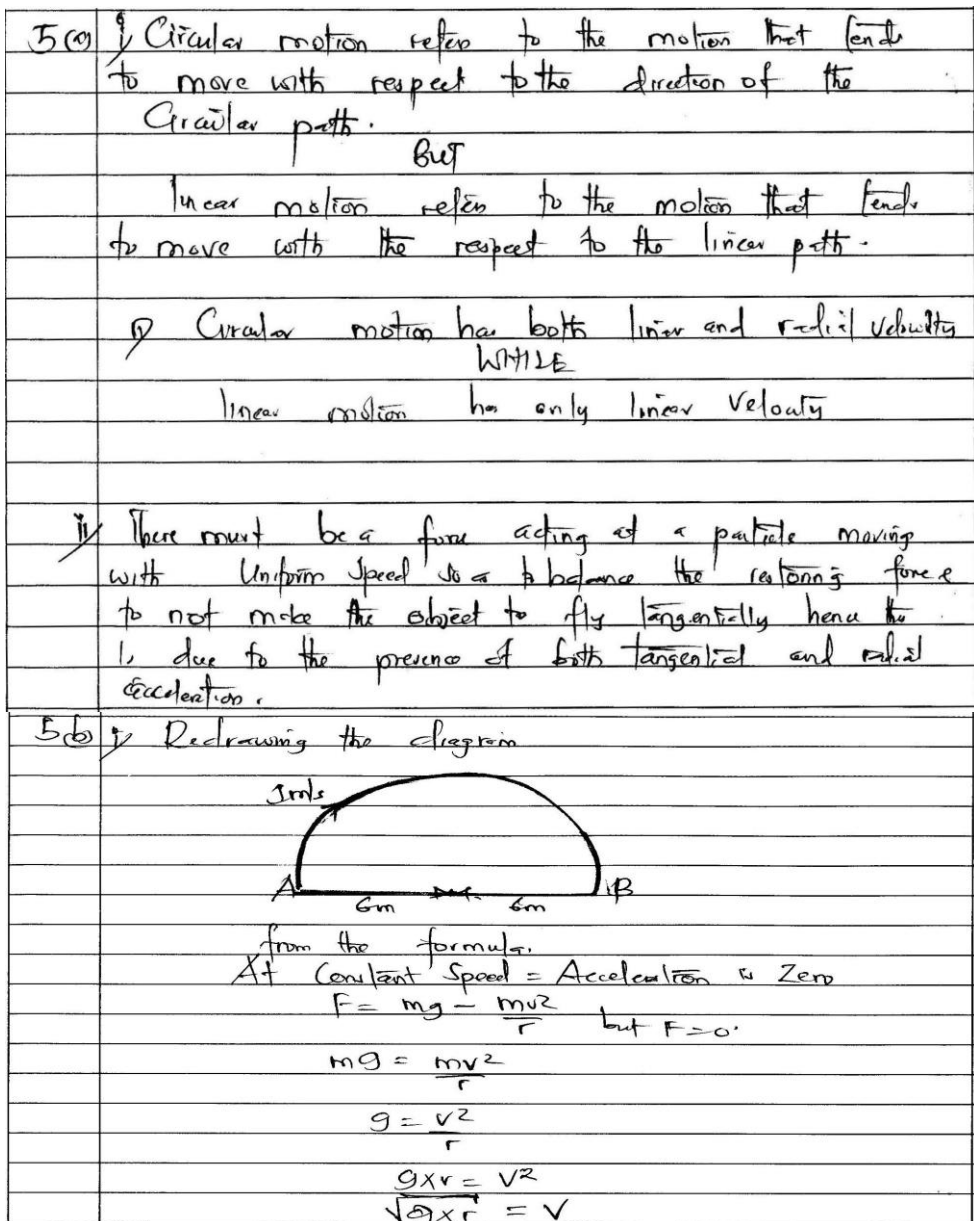 5(a) i) Circular motion refers to the motion that tends
to move with respect to the direction of the
Circular path.
BUT
linear motion refers to the motion that tends
to move with the respect to the linear path.
Circular motion has both linear and radial velocity
WHILE
linear motion has only linear velocity
ii) There must be a force acting at a particle moving
with Uniform speed so as to balance the restoring force
to not make the object to fly tangentially hence the
is due to the presence of both tangential and radial
acceleration.
5(b) i) Redrawing the diagram
3m/s
A B
6m 6m
from the formula.
At Constant Speed = Acceleration is Zero
F = mg - mv²/r but F=0.
mg = mv²/r
g = v²/r
g×r = v²
√g×r = v